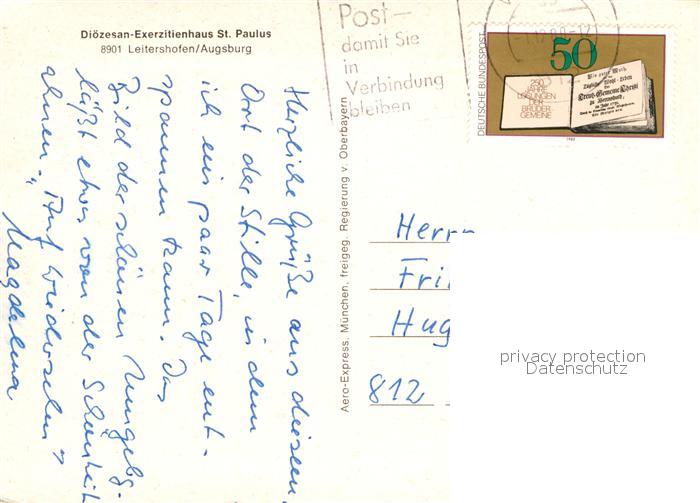 Diözesan-Exerzitienhaus St. Paulus
8901 Leitershofen/Augsburg
Post—
damit Sie
in
Verbindung
bleiben
DEUTSCHE BUNDESPOST
50
250
JAHRE
LOSUNGEN
DER
BRÜDER
GEMEINE
Herzliche Grüße aus diesem
Ort der Stille, in dem
ich ein paar Tage ent-
spannen kann. Das
Bild der schönen Umgebg.
läßt etwas von der Schönheit
ahnen. „Auf Wiedersehen"
Magdalena
Aero-Express. München, freigeg. Regierung v. Oberbayern
Herrn
Fri
Hug
812
privacy protection
Datenschutz